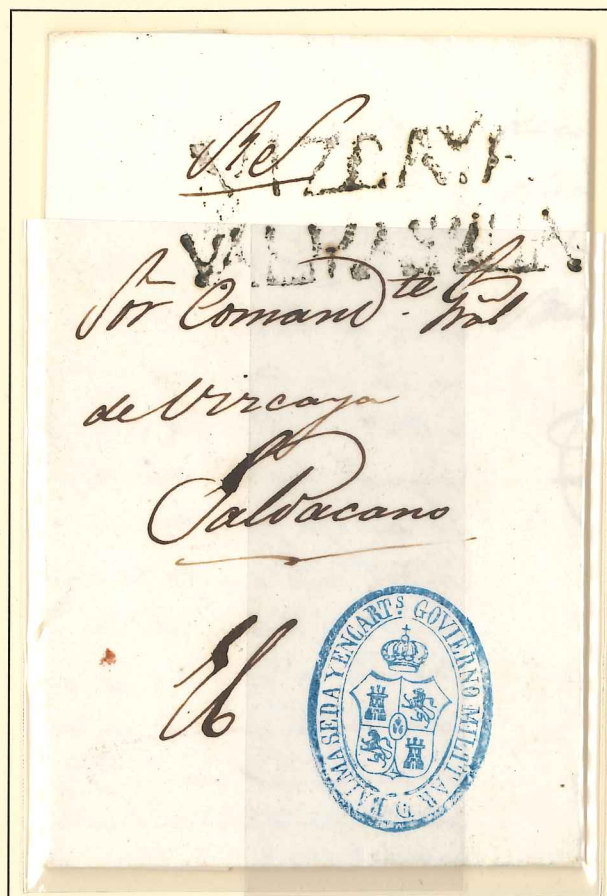 VIZCAYA
VALMASEDA
Sor Comandte Gral
de Vizcaya
Galdacano
GOVIERNO MILITAR D BALMASEDA Y ENCARTS.